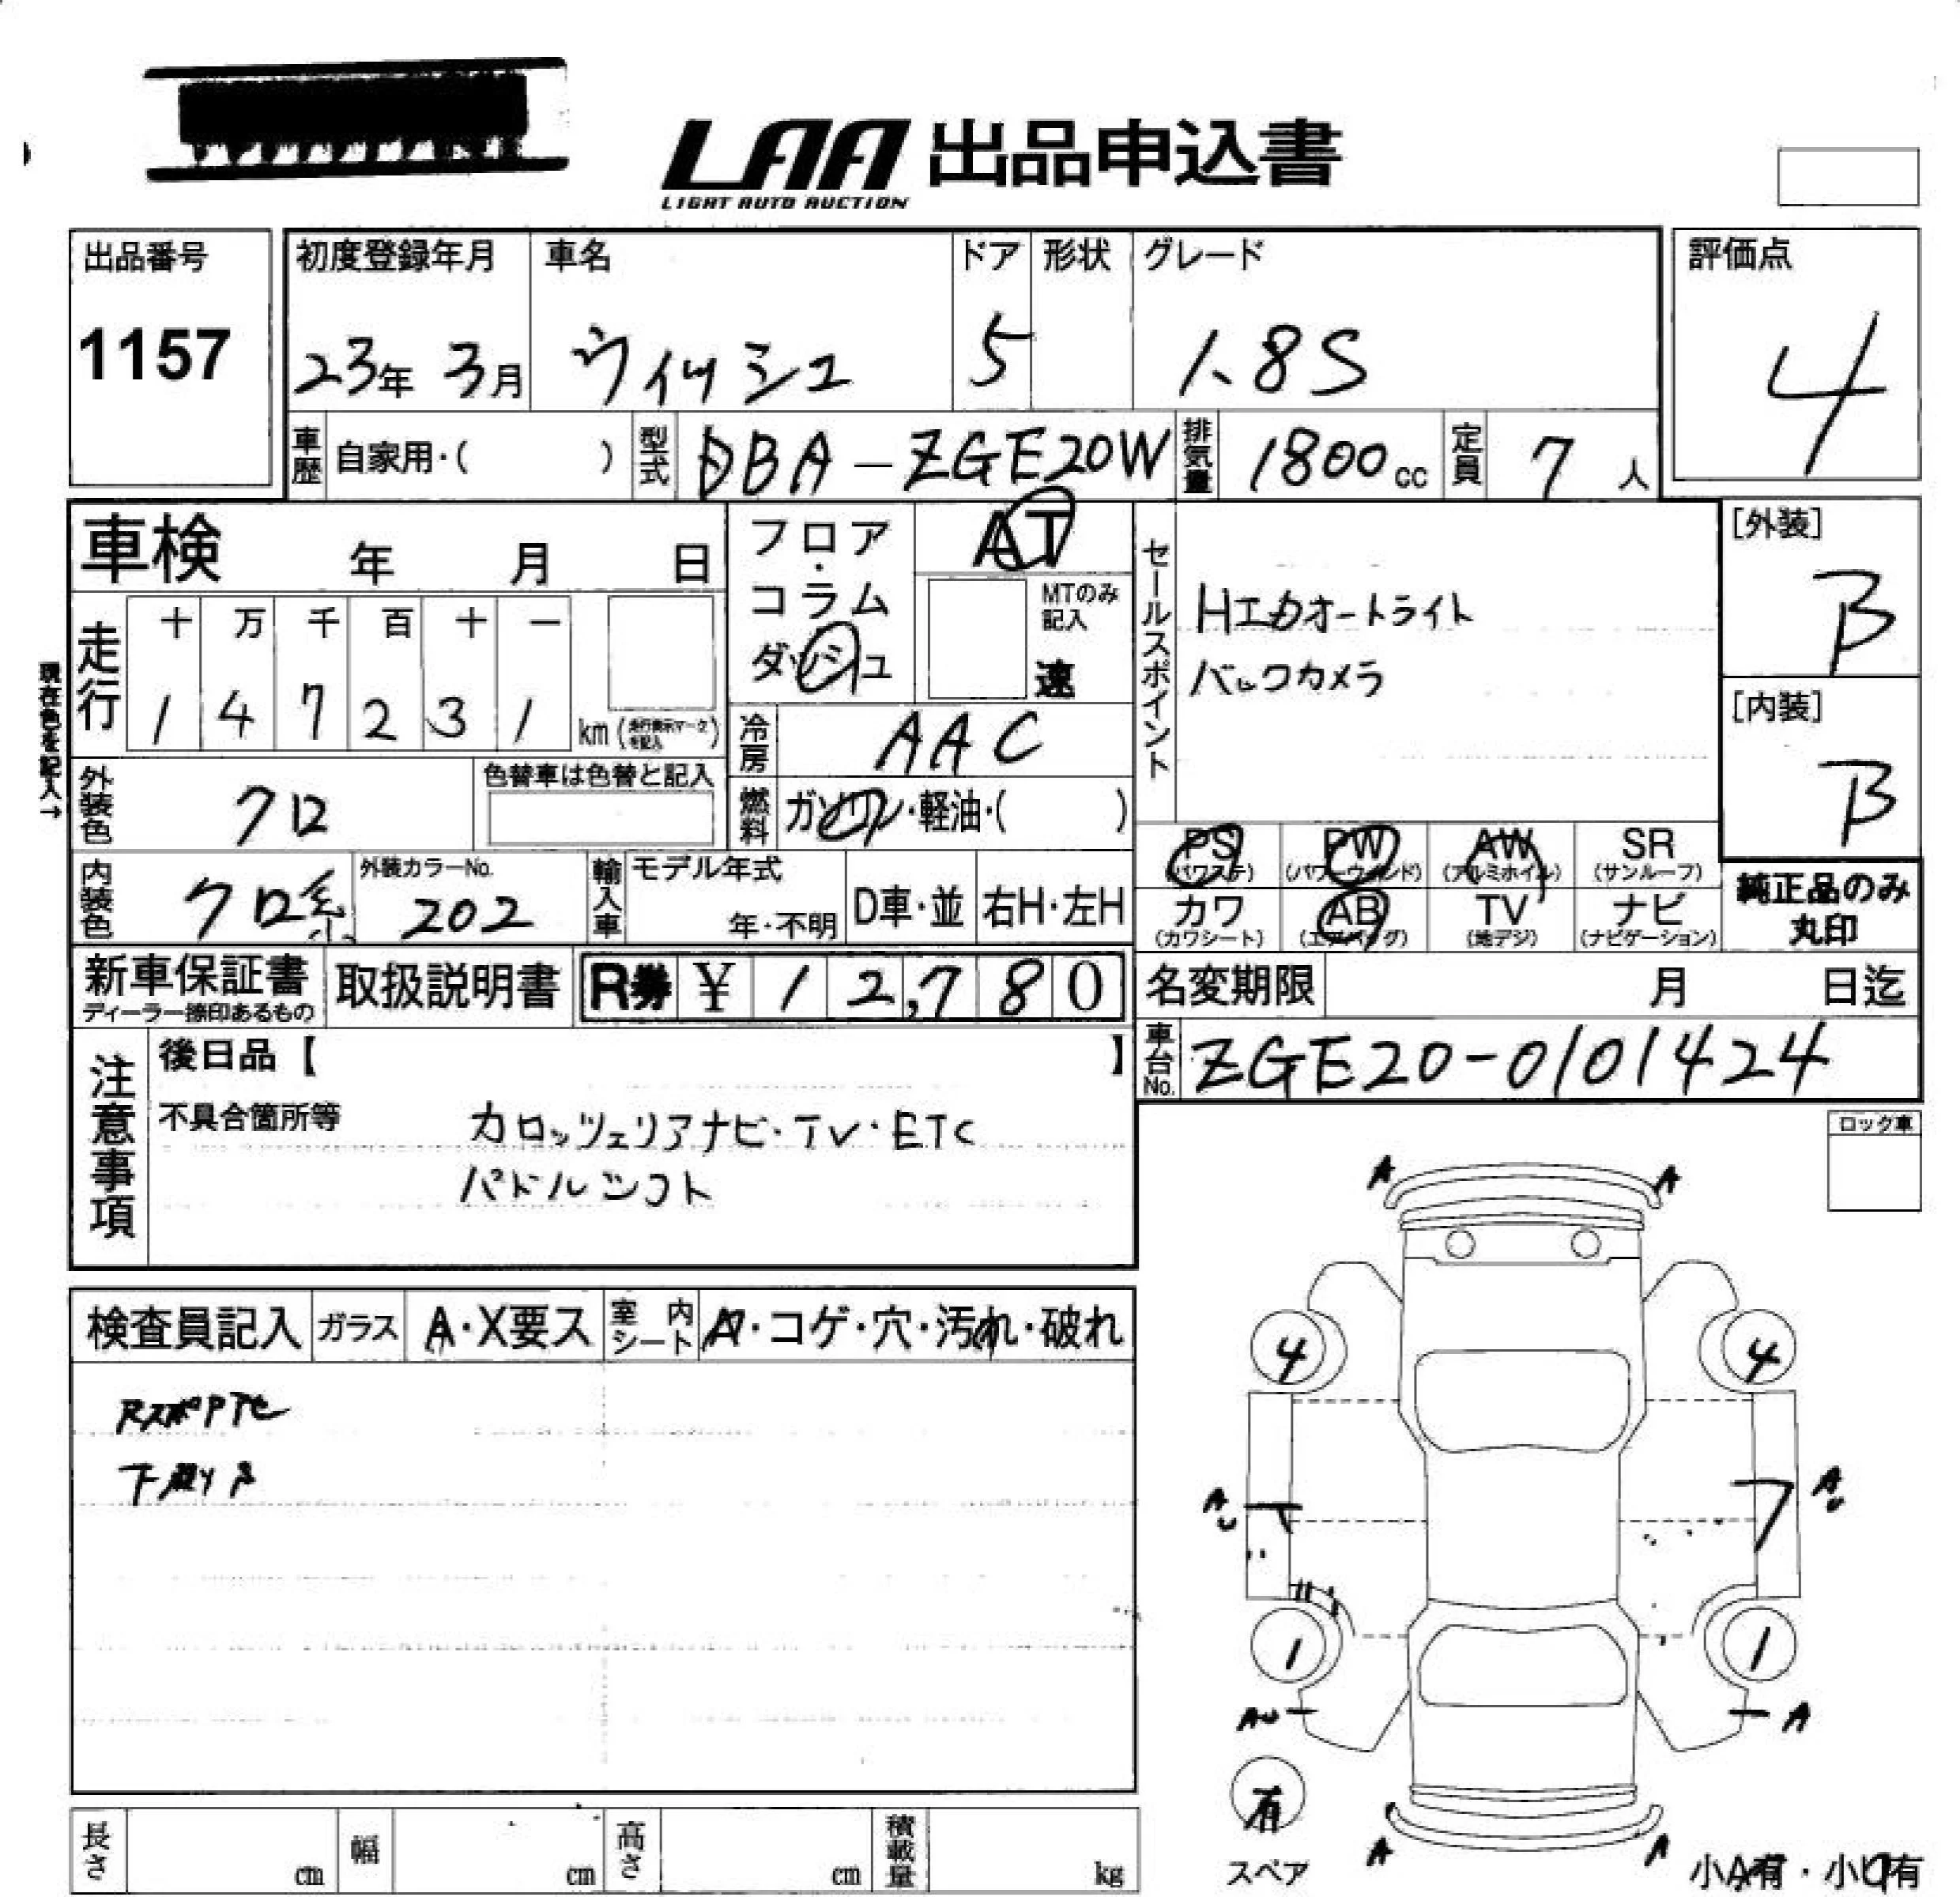 LAA 出品申込書
LIGHT AUTO AUCTION
出品番号
1157
初度登録年月
23年 3月
車名
ウィッシュ
ドア
5
形状
グレード
1.8S
評価点
4
車歴 自家用・( )
型式 DBA-ZGE20W
排気量 1800cc
定員 7人
車検 年 月 日
フロア・コラム
ダッシュ
AT
MTのみ記入
速
セールスポイント
Hエカオートライト
バックカメラ
[外装]
B
[内装]
B
現在色を記入→
走行
十 万 千 百 十 一
1 4 7 2 3 1 km (走行表示マークを記入)
冷房 AAC
外装色 クロ
色替車は色替と記入
燃料 ガソリン・軽油・( )
PS (パワステ)
PW (パワーウィンド)
AW (アルミホイル)
SR (サンルーフ)
カワ (カワシート)
AB (エアバッグ)
TV (地デジ)
ナビ (ナビゲーション)
純正品のみ
丸印
内装色 クロ系
外装カラーNo. 202
輸入車 モデル年式 年・不明
D車・並
右H・左H
新車保証書
ディーラー捺印あるもの
取扱説明書
R券 ¥12,780
名変期限 月 日迄
車台No. ZGE20-0101424
注意事項
後日品【 】
不具合箇所等
カロッツェリアナビ・TV・ETC
パドルシフト
ロック車
検査員記入
ガラス A・X要ス
室内シート A・コゲ・穴・汚れ・破れ
下廻りS
A A
4 4
AU AU
1 1
AU A
有
スペア
A A
小A有・小U有
長さ cm
幅 cm
高さ cm
積載量 kg